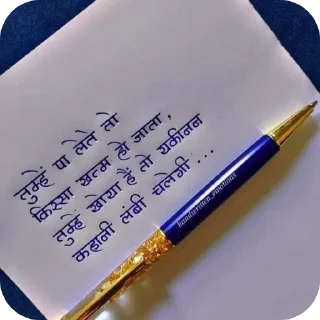 तुम्हें पा लेते तो
किस्सा खत्म हो जाता,
तुम्हे खोया हैं तो यकीनन
कहानी लंबी चलेगी ...